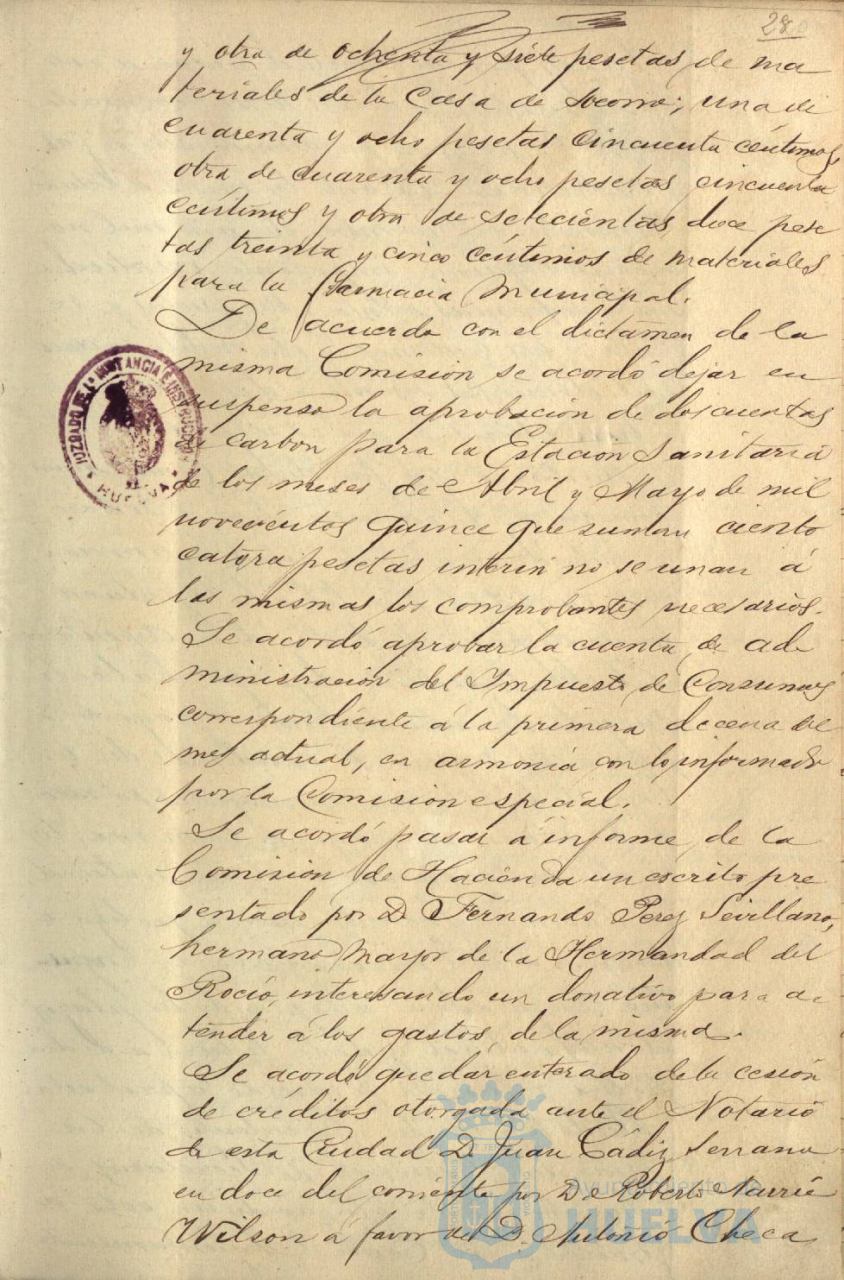 28
y otra de ochenta y siete pesetas de ma
teriales de la Casa de Socorro; una de
cuarenta y ocho pesetas cincuenta céntimos,
otra de cuarenta y ocho pesetas cincuenta
céntimos y otra de setecientas doce pese
tas treinta y cinco céntimos de materiales
para la Farmacia Municipal.
De acuerdo con el dictamen de la
misma Comisión se acordó dejar en
suspenso la aprobación de dos cuentas
de carbón para la Estación Sanitaria
de los meses de Abril y Mayo de mil
novecientos quince que suman ciento
catorce pesetas interin no se unan á
las mismas los comprobantes necesarios.
Se acordó aprobar la cuenta de ad
ministración del Impuesto de Consumos
correspondiente á la primera decena del
mes actual, en armonía con lo informado
por la Comisión especial.
Se acordó pasar á informe de la
Comisión de Hacienda un escrito pre
sentado por D. Fernando Perez Sevillano,
hermano mayor de la Hermandad del
Rocío, interesando un donativo para a
tender á los gastos de la misma.
Se acordó quedar enterado de la cesión
de créditos otorgada ante el Notario
de esta Ciudad D. Juan Cádiz Serrano
en doce del corriente por D. Roberto
Wilson á favor de D. Antonio Checa
JUZGADO DE 1ª INSTANCIA E INSTRUCCIÓN
HUELVA
Ayuntamiento de
HUELVA